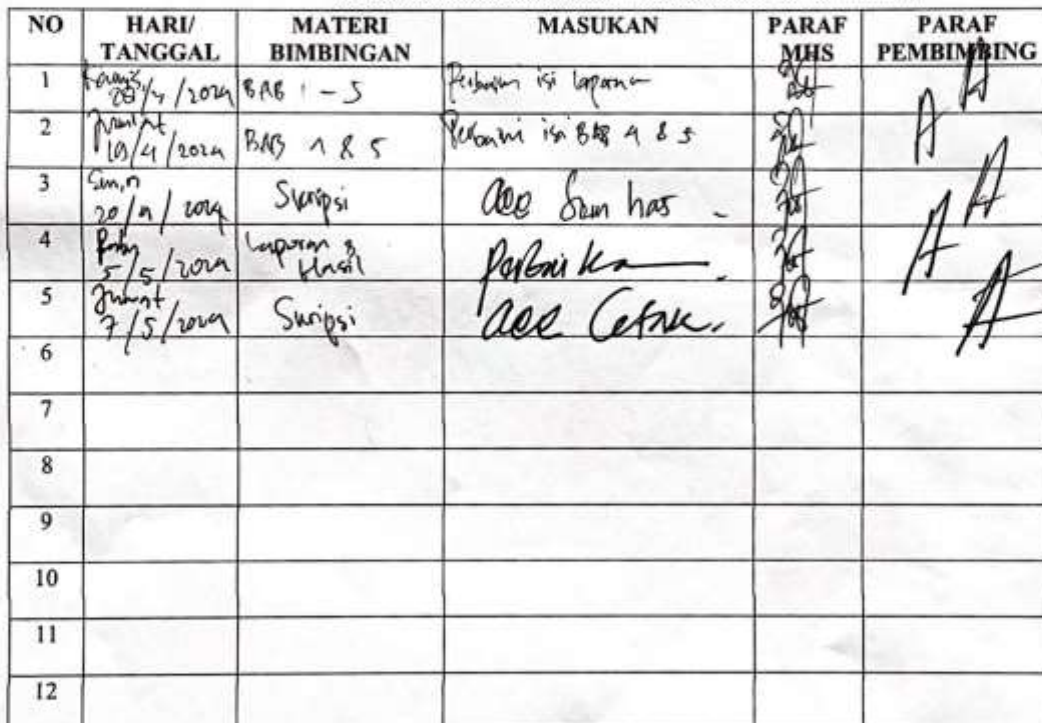 NO HARI/ TANGGAL MATERI BIMBINGAN MASUKAN PARAF MHS PARAF PEMBIMBING
1 Kamis BAB 1 - 5 Perbaiki isi laporan
2 Jumat 19/4/2024 BAB 4 & 5 Perbaiki isi BAB 4 & 5
3 Senin Skripsi acc Sem has
4 5/5/2024 Laporan Hasil Perbaikan
5 Jumat 7/5/2024 Skripsi acc Cetak.
6
7
8
9
10
11
12